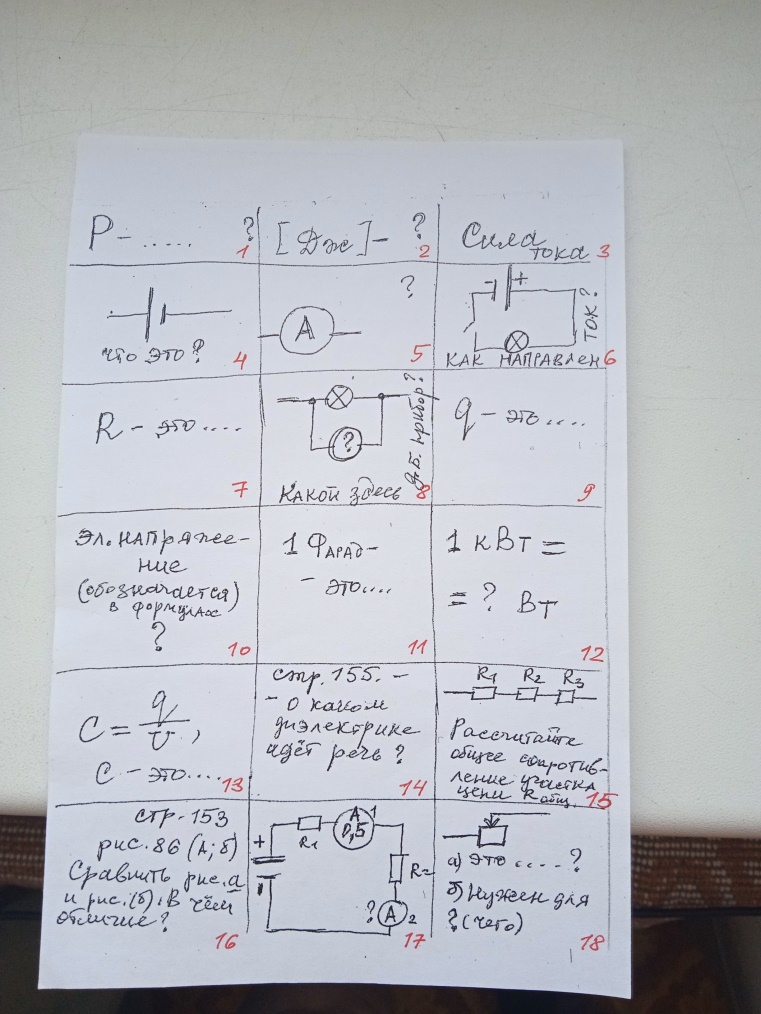 P - ..... ?
1
[Дж] - ?
2
Сила
тока 3
что это?
4
?
A
5
+
ТОК?
КАК НАПРАВЛЕН 6
R - это ....
7
?
д.б. прибор?
КАКОЙ здесь 8
q - это ....
9
Эл. НАПРЯЖЕ-
НИЕ
(обозначается)
в формулах
?
10
1 ФАРАД -
- это....
11
1 кВт =
= ? Вт
12
C = q/U,
C - это....
13
стр. 155. -
- о каком
диэлектрике
идёт речь?
14
R1 R2 R3
Рассчитайте
общее сопротив-
ление участка
цепи Rобщ.
15
стр. 153
рис. 86 (А; б)
Сравнить рис. а
и рис. (б). В чём
отличие?
16
+
-
R1
A 1
0,5
R2
? A 2
17
а) это ....?
б) Нужен для
? (чего)
18